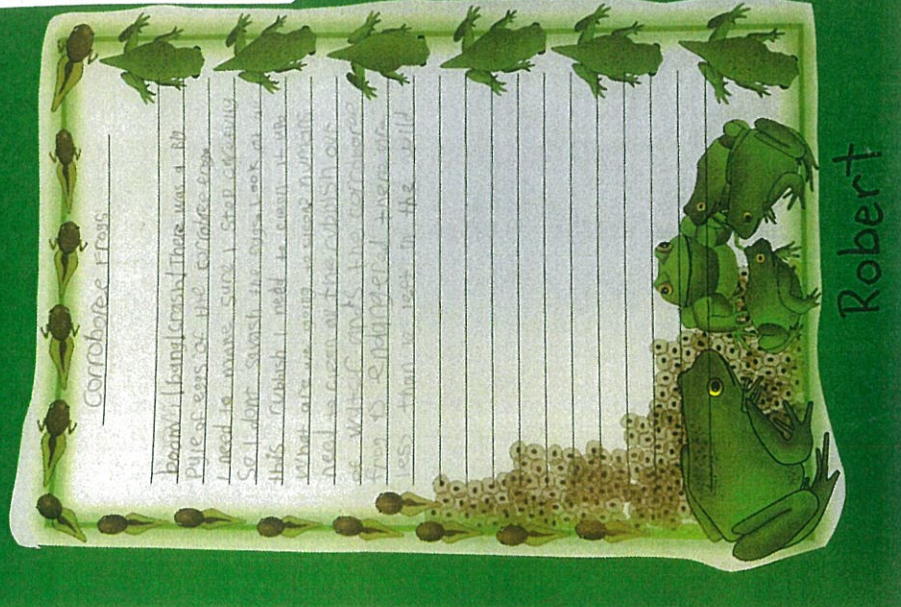 Corroboree Frogs
boom! bang! crash! There was a
Pyle of eggs of the corroboree
I need to make sure I step carefully
So I dont swash the eggs Look at
this rubbish I need to clean it up
What are we going to do
need to clean all the rubbish out
of water and the corroboree
frog is endangered there are
less than left in the wild
Robert